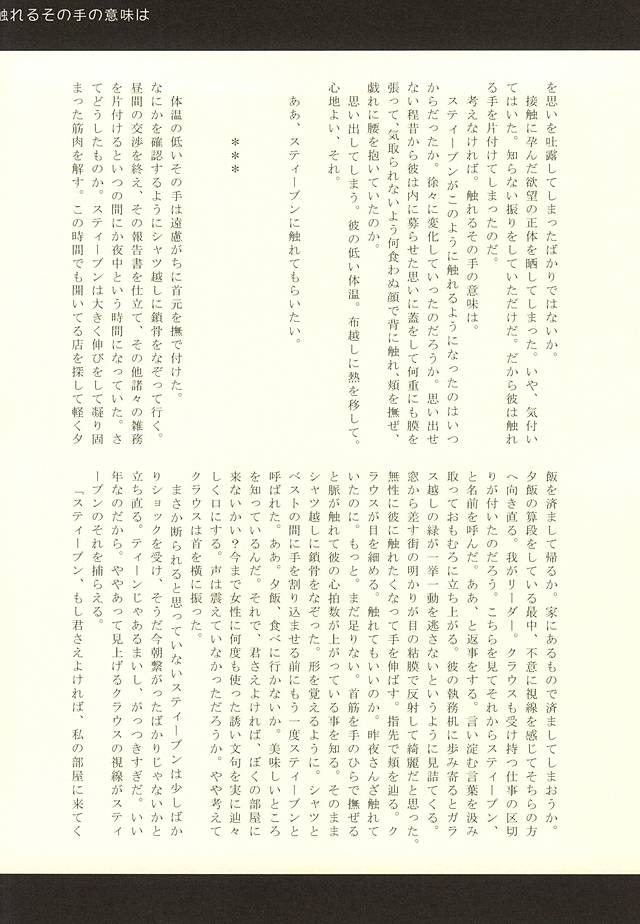 触れるその手の意味は
を思いを吐露してしまったばかりではないか。
　接触に孕んだ欲望の正体を晒してしまった。いや、気付い
てはいた。知らない振りをしていただけだ。だから彼は触れ
る手を片付けてしまったのだ。
　考えなければ。触れるその手の意味は。
　スティーブンがこのように触れるようになったのはいつ
からだったか。徐々に変化していったのだろうか。思い出せ
ない程昔から彼は内に募らせた思いに蓋をして何重にも膜を
張って、気取られないよう何食わぬ顔で背に触れ、頬を撫ぜ、
戯れに腰を抱いていたのか。
　思い出してしまう。彼の低い体温。布越しに熱を移して。
心地よい、それ。
ああ、スティーブンに触れてもらいたい。
＊＊＊
　体温の低いその手は遠慮がちに首元を撫で付けた。
なにかを確認するようにシャツ越しに鎖骨をなぞって行く。
昼間の交渉を終え、その報告書を仕立て、その他諸々の雑務
を片付けるといつの間にか夜中という時間になっていた。さ
てどうしたものか。スティーブンは大きく伸びをして凝り固
まった筋肉を解す。この時間でも開いてる店を探して軽く夕
飯を済まして帰るか。家にあるもので済ましてしまおうか。
夕飯の算段をしている最中、不意に視線を感じてそちらの方
へ向き直る。我がリーダー。クラウスも受け持つ仕事の区切
りが付いたのだろう。こちらを見てそれからスティーブン、
と名前を呼んだ。ああ、と返事をする。言い淀む言葉を汲み
取っておもむろに立ち上がる。彼の執務机に歩み寄るとガラ
ス越しの緑が一挙一動を逃さないというように見詰てくる。
窓から差す街の明かりが目の粘膜で反射して綺麗だと思った。
無性に彼に触れたくなって手を伸ばす。指先で頬を辿る。ク
ラウスが目を細める。触れてもいいのか。昨夜さんざ触れて
いたのに。もっと。まだ足りない。首筋を手のひらで撫ぜる
と脈が触れて彼の心拍数が上がっている事を知る。そのまま
シャツ越しに鎖骨をなぞった。形を覚えるように。シャツと
ベストの間に手を割り込ませる前にもう一度スティーブンと
呼ばれた。ああ。夕飯、食べに行かないか。美味しいところ
を知っているんだ。それで、君さえよければ、ぼくの部屋に
来ないかい？今まで女性に何度も使った誘い文句を実に辿々
しく口にする。声は震えていなかっただろうか。やや考えて
クラウスは首を横に振った。
　まさか断られると思っていないスティーブンは少しばか
りショックを受け、そうだ今朝繋がったばかりじゃないかと
立ち直る。ティーンじゃあるまいし、がっつきすぎだ。いい
年なのだから。ややあって見上げるクラウスの視線がスティ
ーブンのそれを捕らえる。
「スティーブン、もし君さえよければ、私の部屋に来てく